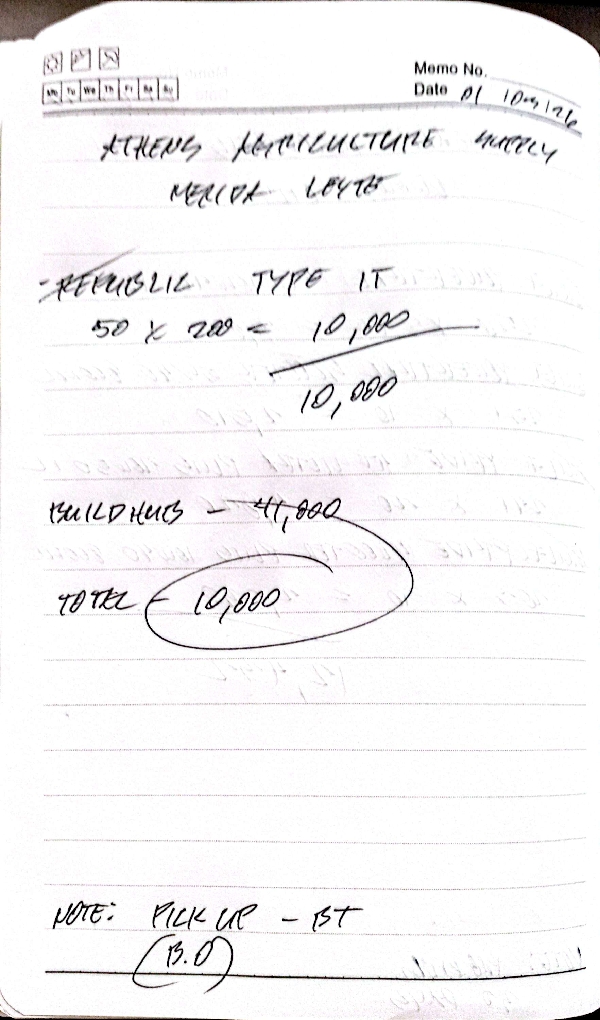 Mo Tu We Th Fr Sa Su
Memo No.
Date
ATHENS AGRICULTURE SUPPLY
MERIDA LEYTE
- REPUBLIC TYPE 1T
50 X 200 = 10,000
10,000
BUILDHUB - 41,000
TOTAL - 10,000
NOTE: PICK UP - BT
(B.O)